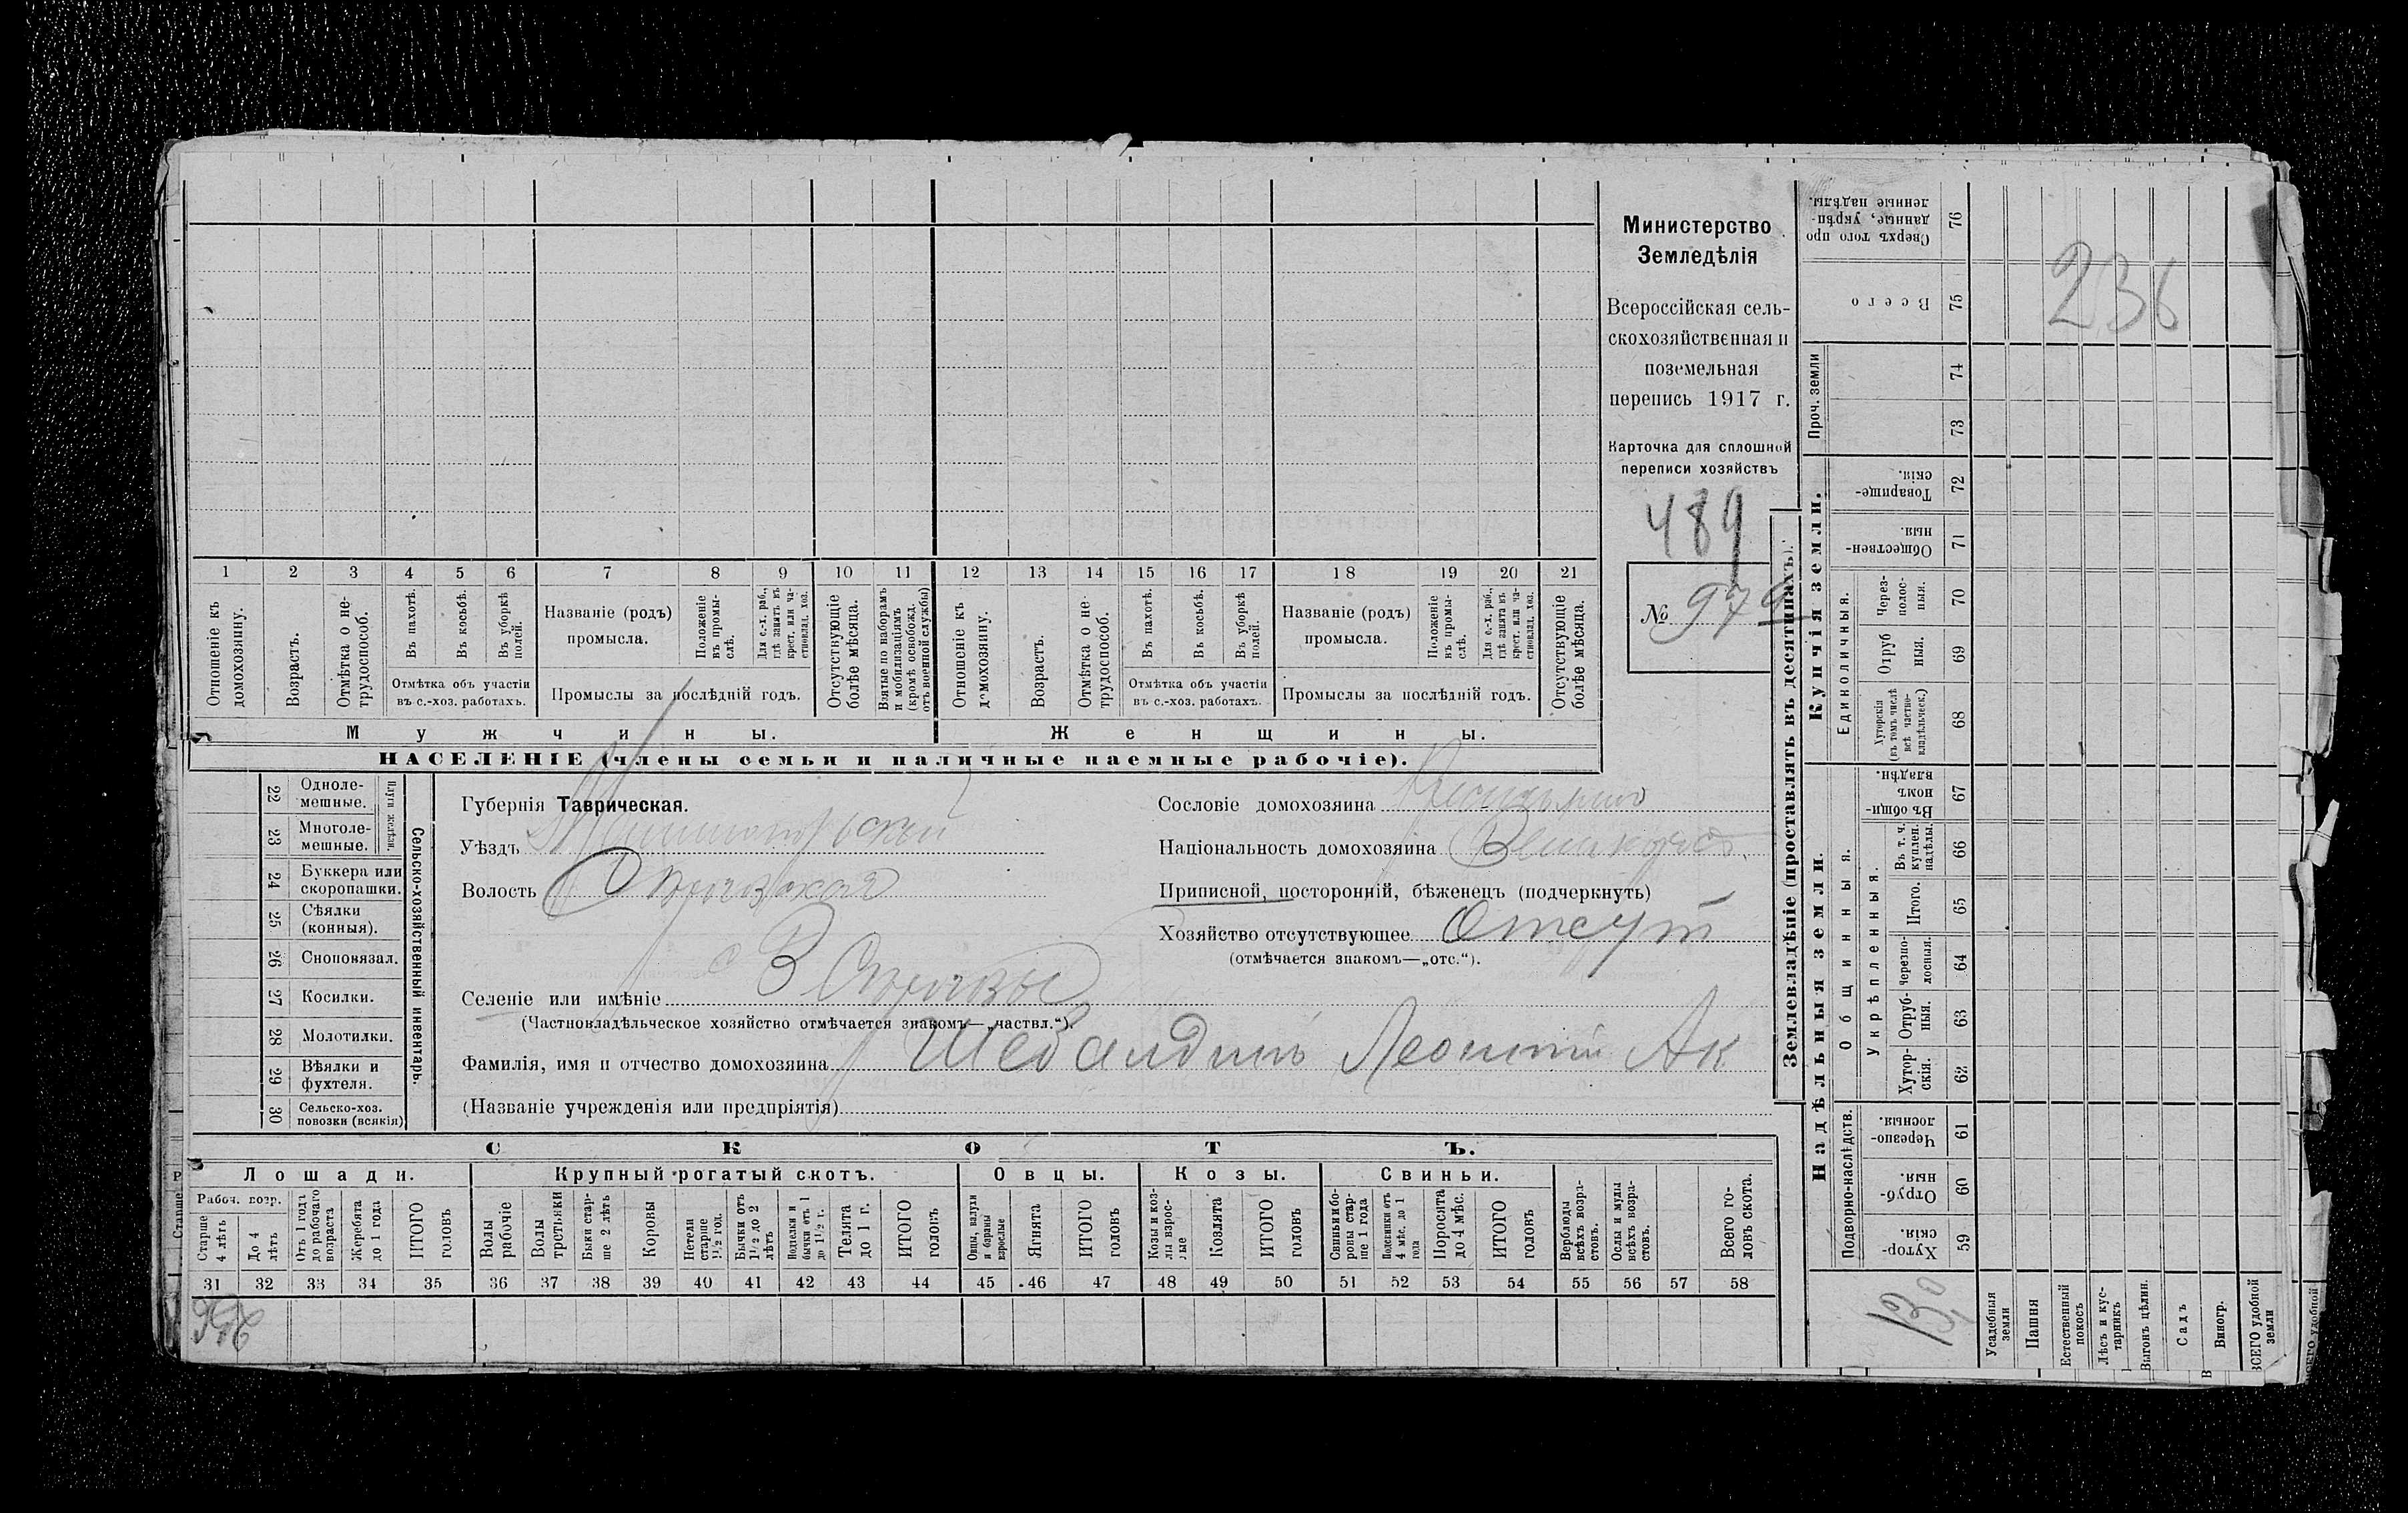 Министерство
Земледѣлія
Всероссійская сель-
скохозяйственная и
поземельная
перепись 1917 г.
Карточка для сплошной
переписи хозяйствъ
489
№ 979
236
1 2 3 4 5 6 7 8 9 10 11 12 13 14 15 16 17 18 19 20 21
Отношеніе къ домохозяину.
Возрастъ.
Отмѣтка о не-трудоспособ.
Въ пахотѣ.
Въ косьбѣ.
Въ уборкѣ полей.
Отмѣтка объ участіи въ с.-хоз. работахъ.
Названіе (родъ) промысла.
Положеніе въ промы-слѣ.
Для с.-х. раб., гдѣ занятъ въ крест. или ча-стновлад. хоз.
Промыслы за послѣдній годъ.
Отсутствующіе болѣе мѣсяца.
Взятые по наборамъ и мобилизаціямъ (кромѣ освобожд. отъ военной службы)
Отношеніе къ домохозяину.
Возрастъ.
Отмѣтка о не-трудоспособ.
Въ пахотѣ.
Въ косьбѣ.
Въ уборкѣ полей.
Отмѣтка объ участіи въ с.-хоз. работахъ.
Названіе (родъ) промысла.
Положеніе въ промы-слѣ.
Для с.-х. раб., гдѣ занята въ крест. или ча-стновлад. хоз.
Промыслы за послѣдній годъ.
Отсутствующіе болѣе мѣсяца.
Мужчины.
Женщины.
НАСЕЛЕНІЕ (члены семьи и наличные наемные рабочіе).
22 Одноле-мешные.
23 Многоле-мешные.
Плуги желѣзн.
24 Буккера или скоропашки.
25 Сѣялки (конныя).
26 Сноповязал.
27 Косилки.
28 Молотилки.
29 Вѣялки и фухтеля.
30 Сельско-хоз. повозки (всякія)
Сельско-хозяйственный инвентарь.
Губернія Таврическая.
Уѣздъ
Волость
Селеніе или имѣніе с В
(Частновладѣльческое хозяйство отмѣчается знакомъ—„частвл.“).
Фамилія, имя и отчество домохозяина Шевалдинъ Леонтій Ак
(Названіе учрежденія или предпріятія)
Сословіе домохозяина
Національность домохозяина Великорос.
Приписной, посторонній, бѣженецъ (подчеркнуть)
Хозяйство отсутствующее Отсут
(отмѣчается знакомъ—„отс.“).
СКОТЪ.
Лошади.
Крупный рогатый скотъ.
Овцы.
Козы.
Свиньи.
Рабоч. возр.
Старше 4 лѣтъ
До 4 лѣтъ
Отъ 1 года до рабочаго возраста
Жеребята до 1 года
ИТОГО головъ
Волы рабочіе
Волы третьяки
Быки стар-ше 2 лѣтъ
Коровы
Нетели старше 1½ год.
Бычки отъ 1½ до 2 лѣтъ
Подтелки и бычки отъ 1 до 1½ г.
Телята до 1 г.
ИТОГО головъ
Овцы, валухи и бараны взрослые
Ягнята
ИТОГО головъ
Козы и коз-лы взрос-лые
Козлята
ИТОГО головъ
Свиньи и бо-ровы стар-ше 1 года
Подсвинки отъ 4 мѣс. до 1 года
Поросята до 4 мѣс.
ИТОГО головъ
Верблюды всѣхъ возра-стовъ.
Ослы и мулы всѣхъ возра-стовъ.
Всего го-ловъ скота.
31 32 33 34 35 36 37 38 39 40 41 42 43 44 45 46 47 48 49 50 51 52 53 54 55 56 57 58
Землевладѣніе (проставлять въ десятинахъ).
Купчія земли.
Надѣльныя земли.
Проч. земли
Единоличныя.
Общинныя.
Укрѣпленныя.
Подворно-наслѣдств.
Сверхъ того про данные, укрѣп-ленные надѣлы. 76
Всего 75
74
73
Товарище-скія. 72
Обществен-ныя. 71
Через-полос-ныя. 70
Отруб ныя. 69
Хуторскія (въ томъ числѣ всѣ частно-владѣльческ.) 68
Въ общи-номъ владѣн. 67
Въ т. ч. куплен. надѣлы. 66
Итого. 65
Черезпо-лосныя. 64
Отруб-ныя. 63
Хутор-скія. 62
Черезпо-лосныя. 61
Отруб-ныя. 60
Хутор-скія. 59
Усадебныя земли
Пашня
Естественный покосъ
Лѣсъ и кус-тарникъ
Выгонъ цѣлин.
Садъ
Виногр.
ВСЕГО удобной земли